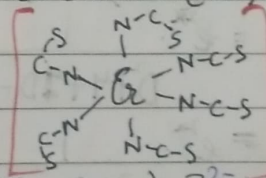 N-C
S
S
C-N
N-C-S
N-C-S
C-N
S
N-C-S